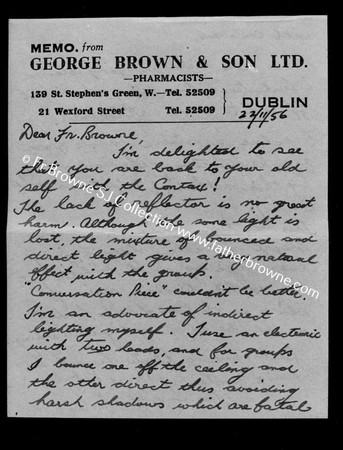 MEMO. from
GEORGE BROWN & SON LTD.
—PHARMACISTS—
139 St. Stephen's Green, W.—Tel. 52509
21 Wexford Street Tel. 52509
DUBLIN
22/11/56
Dear Fr. Browne,
I'm delighted to see
that you are back to your old
self with the Contax!
The lack of a reflector is no great
harm. Although the some light is
lost, the mixture of bounced and
direct light gives a very natural
effect with the group.
"Conversation Piece" couldn't be better.
I'm an advocate of indirect
lighting myself. I use an electronic
with two leads, and for groups
I bounce one off the ceiling and
the other direct thus avoiding
harsh shadows which are fatal
© Fr Browne S.J. Collection www.fatherbrowne.com